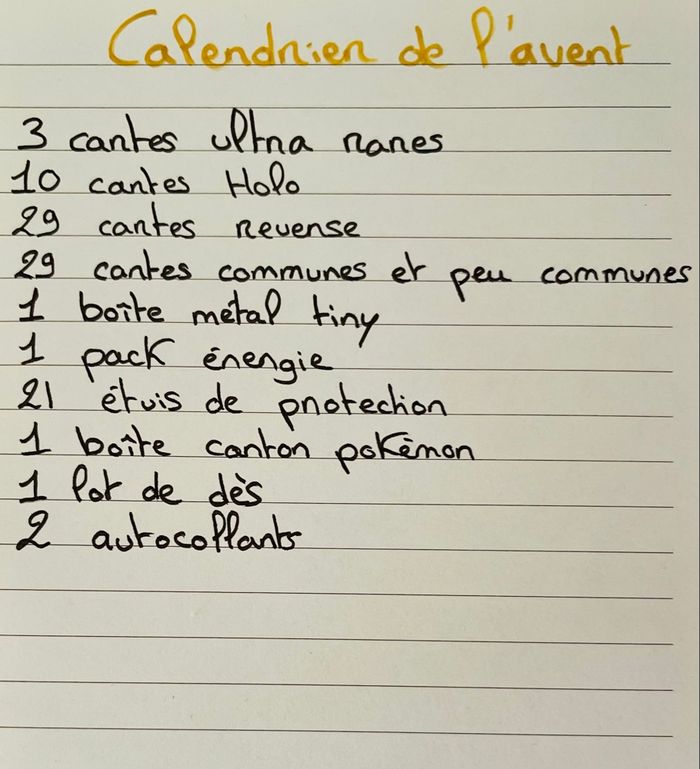 Calendrier de l'avent
3 cartes ultra rares
10 cartes Holo
29 cartes reverse
29 cartes communes et peu communes
1 boîte métal tiny
1 pack énergie
21 étuis de protection
1 boîte carton pokémon
1 lot de dès
2 autocollants